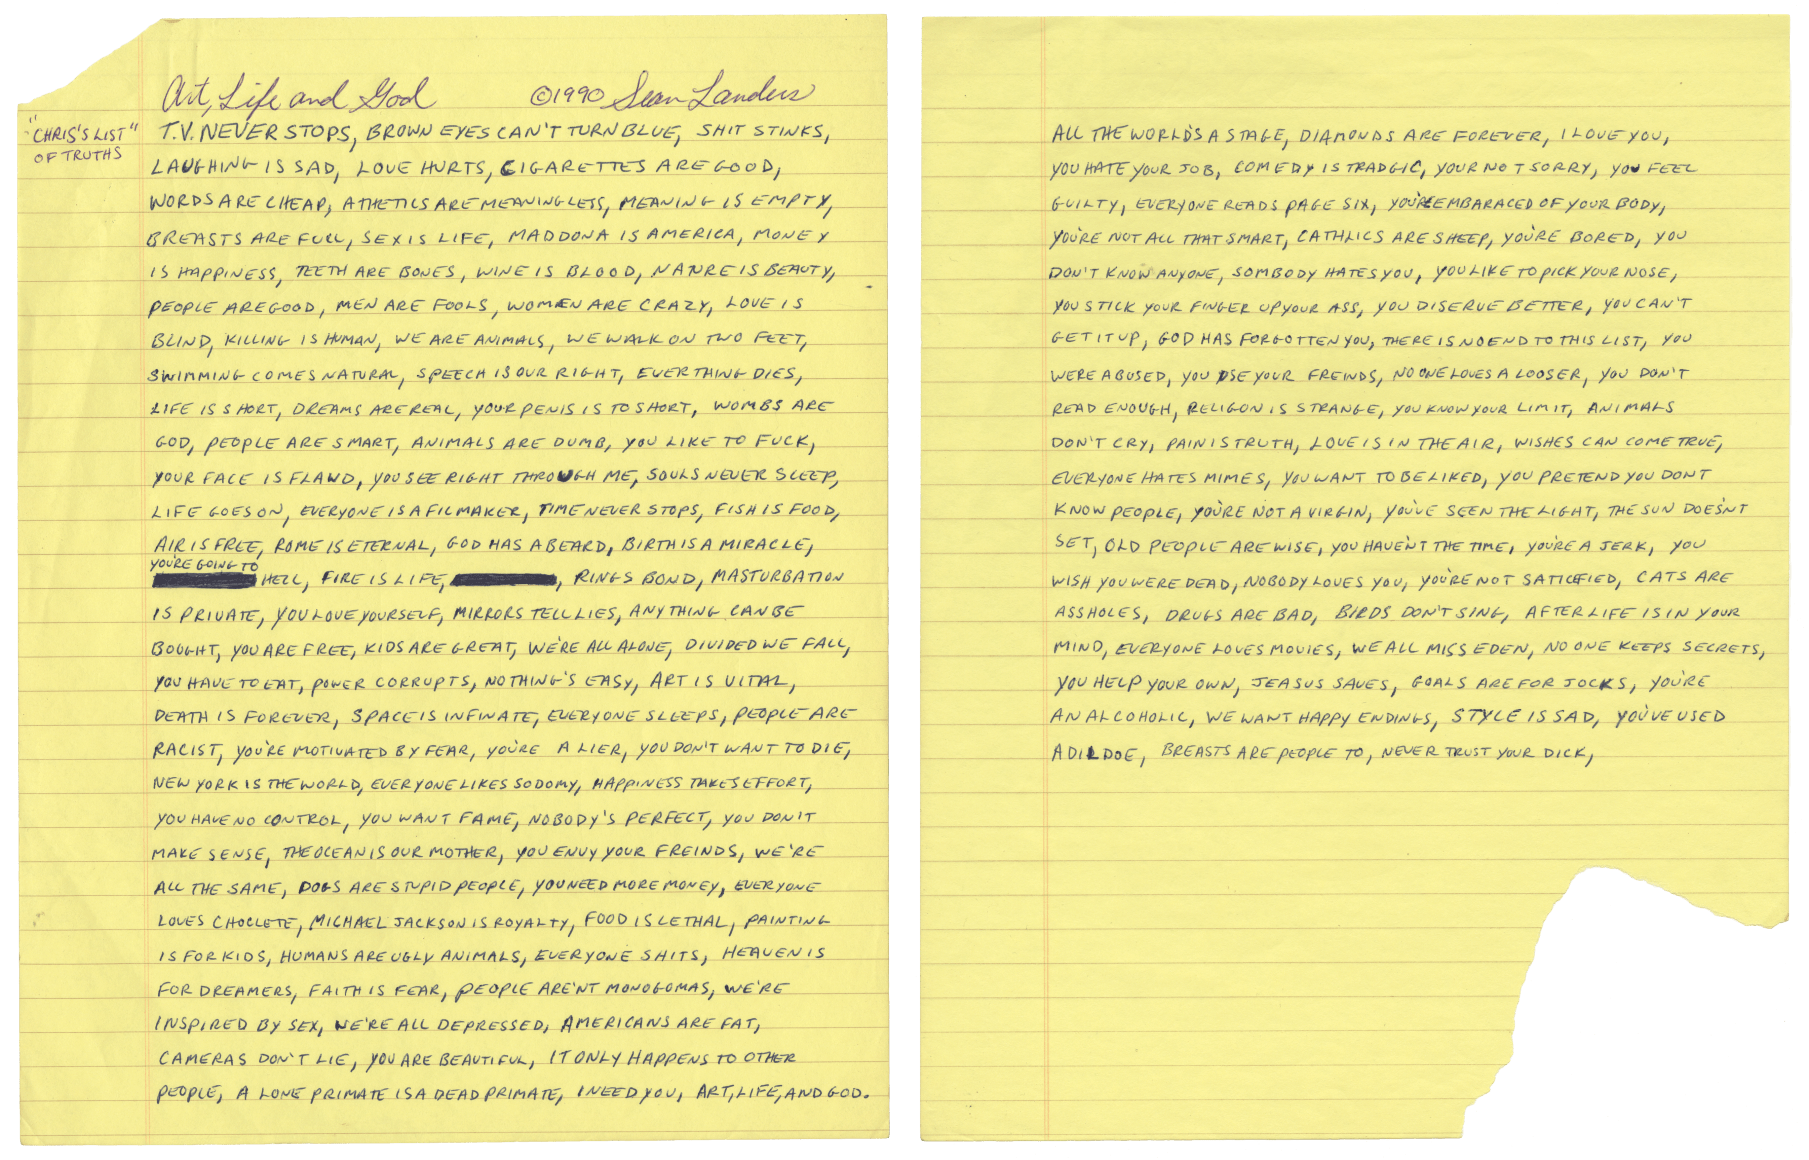 Art, Life and God ©1990 Sean Landers
"CHRIS'S LIST"
OF TRUTHS
T.V. NEVER STOPS, BROWN EYES CAN'T TURN BLUE, SHIT STINKS,
LAUGHING IS SAD, LOVE HURTS, CIGARETTES ARE GOOD,
WORDS ARE CHEAP, ATHETICS ARE MEANINGLESS, MEANING IS EMPTY,
BREASTS ARE FULL, SEX IS LIFE, MADDONA IS AMERICA, MONEY
IS HAPPINESS, TEETH ARE BONES, WINE IS BLOOD, NATRE IS BEAUTY,
PEOPLE ARE GOOD, MEN ARE FOOLS, WOMEN ARE CRAZY, LOVE IS
BLIND, KILLING IS HUMAN, WE ARE ANIMALS, WE WALK ON TWO FEET,
SWIMMING COMES NATURAL, SPEECH IS OUR RIGHT, EVERTHING DIES,
LIFE IS SHORT, DREAMS ARE REAL, YOUR PENIS IS TO SHORT, WOMBS ARE
GOD, PEOPLE ARE SMART, ANIMALS ARE DUMB, YOU LIKE TO FUCK,
YOUR FACE IS FLAWD, YOU SEE RIGHT THROUGH ME, SOULS NEVER SLEEP,
LIFE GOES ON, EVERYONE IS A FILMAKER, TIME NEVER STOPS, FISH IS FOOD,
AIR IS FREE, ROME IS ETERNAL, GOD HAS A BEARD, BIRTH IS A MIRACLE,
YOU'RE GOING TO
HELL, FIRE IS LIFE, , RINGS BOND, MASTURBATION
IS PRIVATE, YOU LOVE YOURSELF, MIRRORS TELL LIES, ANYTHING CAN BE
BOUGHT, YOU ARE FREE, KIDS ARE GREAT, WE'RE ALL ALONE, DIVIDED WE FALL,
YOU HAVE TO EAT, POWER CORRUPTS, NOTHING'S EASY, ART IS VITAL,
DEATH IS FOREVER, SPACE IS INFINATE, EVERYONE SLEEPS, PEOPLE ARE
RACIST, YOU'RE MOTIVATED BY FEAR, YOU'RE A LIER, YOU DON'T WANT TO DIE,
NEW YORK IS THE WORLD, EVERYONE LIKES SODOMY, HAPPINESS TAKES EFFORT,
YOU HAVE NO CONTROL, YOU WANT FAME, NOBODY'S PERFECT, YOU DON'T
MAKE SENSE, THE OCEAN IS OUR MOTHER, YOU ENVY YOUR FREINDS, WE'RE
ALL THE SAME, DOGS ARE STUPID PEOPLE, YOU NEED MORE MONEY, EVERYONE
LOVES CHOCLETE, MICHAEL JACKSON IS ROYALTY, FOOD IS LETHAL, PAINTING
IS FOR KIDS, HUMANS ARE UGLY ANIMALS, EVERYONE SHITS, HEAVEN IS
FOR DREAMERS, FAITH IS FEAR, PEOPLE ARE'NT MONOGOMAS, WE'RE
INSPIRED BY SEX, WE'RE ALL DEPRESSED, AMERICANS ARE FAT,
CAMERAS DON'T LIE, YOU ARE BEAUTIFUL, IT ONLY HAPPENS TO OTHER
PEOPLE, A LONE PRIMATE IS A DEAD PRIMATE, I NEED YOU, ART, LIFE, AND GOD.
ALL THE WORLD'S A STAGE, DIAMONDS ARE FOREVER, I LOVE YOU,
YOU HATE YOUR JOB, COMEDY IS TRADGIC, YOUR NOT SORRY, YOU FEEL
GUILTY, EVERYONE READS PAGE SIX, YOU'RE EMBARACED OF YOUR BODY,
YOU'RE NOT ALL THAT SMART, CATHLICS ARE SHEEP, YOU'RE BORED, YOU
DON'T KNOW ANYONE, SOMBODY HATES YOU, YOU LIKE TO PICK YOUR NOSE,
YOU STICK YOUR FINGER UP YOUR ASS, YOU DISERVE BETTER, YOU CAN'T
GET IT UP, GOD HAS FORGOTTEN YOU, THERE IS NO END TO THIS LIST, YOU
WERE ABUSED, YOU USE YOUR FREINDS, NO ONE LOVES A LOOSER, YOU DON'T
READ ENOUGH, RELIGON IS STRANGE, YOU KNOW YOUR LIMIT, ANIMALS
DON'T CRY, PAIN IS TRUTH, LOVE IS IN THE AIR, WISHES CAN COME TRUE,
EVERYONE HATES MIMES, YOU WANT TO BE LIKED, YOU PRETEND YOU DONT
KNOW PEOPLE, YOU'RE NOT A VIRGIN, YOU'VE SEEN THE LIGHT, THE SUN DOES'NT
SET, OLD PEOPLE ARE WISE, YOU HAVEN'T THE TIME, YOU'RE A JERK, YOU
WISH YOU WERE DEAD, NOBODY LOVES YOU, YOU'RE NOT SATICFIED, CATS ARE
ASSHOLES, DRUGS ARE BAD, BIRDS DON'T SING, AFTER LIFE IS IN YOUR
MIND, EVERYONE LOVES MOVIES, WE ALL MISS EDEN, NO ONE KEEPS SECRETS,
YOU HELP YOUR OWN, JEASUS SAVES, GOALS ARE FOR JOCKS, YOU'RE
AN ALCOHOLIC, WE WANT HAPPY ENDINGS, STYLE IS SAD, YOU'VE USED
A DILDOE, BREASTS ARE PEOPLE TO, NEVER TRUST YOUR DICK,